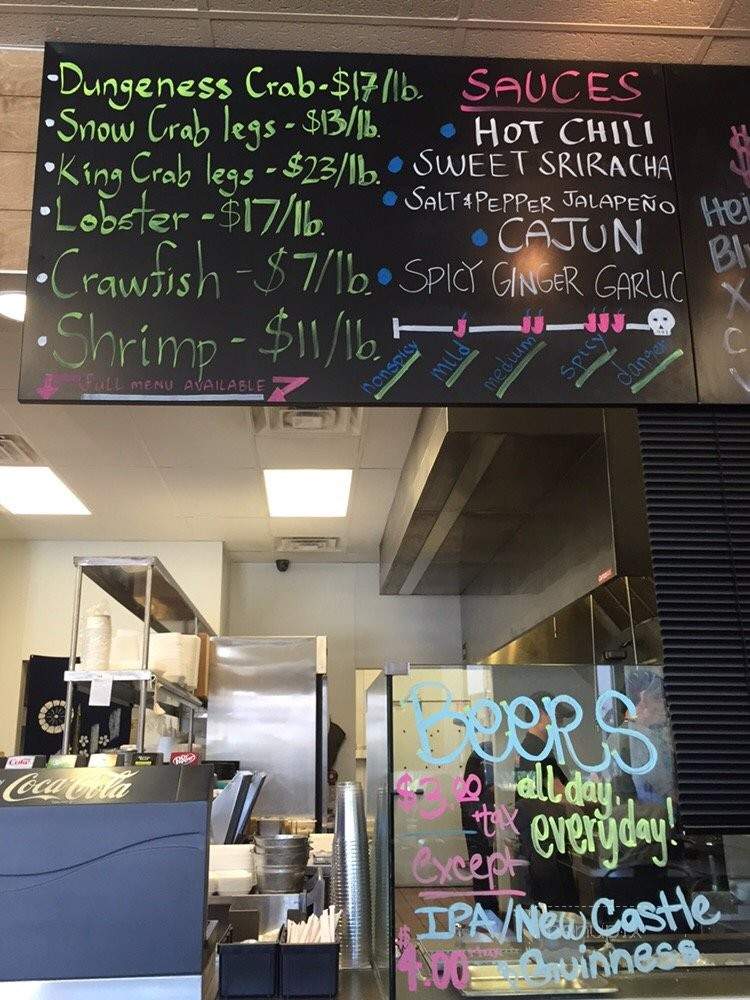 •Dungeness Crab-$17/lb.
•Snow Crab legs - $13/lb.
•King Crab legs - $23/lb.
•Lobster - $17/lb.
•Crawfish - $7/lb.
•Shrimp - $11/lb.
FULL MENU AVAILABLE
SAUCES
• HOT CHILI
• SWEET SRIRACHA
• SALT & PEPPER JALAPEÑO
• CAJUN
• SPICY GINGER GARLIC
nonspicy mild medium spicy danger
$
Hei
Bl
X
C
Coke
Dr Pepper
Coca-Cola
BeeRS
$3.00 all day,
+tax everyday!
except
IPA/New Castle
$4.00 +tax Guinness